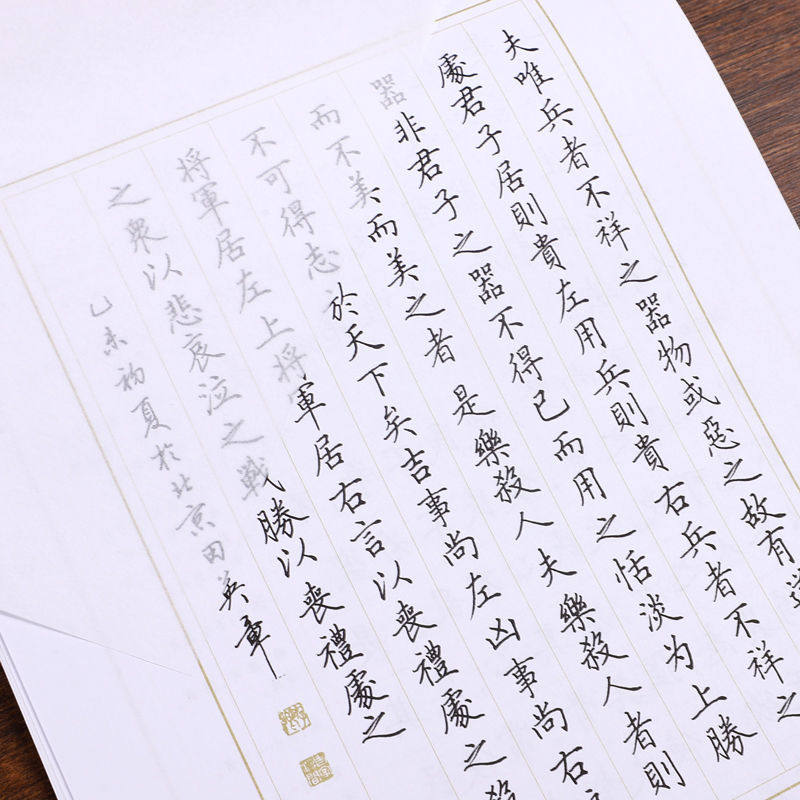 夫唯兵者不祥之器物或惡之故有道
處君子居則貴左用兵則貴右兵者不祥之
器非君子之器不得已而用之恬淡为上勝
而不美而美之者是樂殺人夫樂殺人者則
不可得志於天下矣吉事尚左凶事尚右
将軍居左上将軍居右言以喪禮處之殺
之衆以悲哀泣之戰勝以喪禮處之
乙未初夏於北京田英章